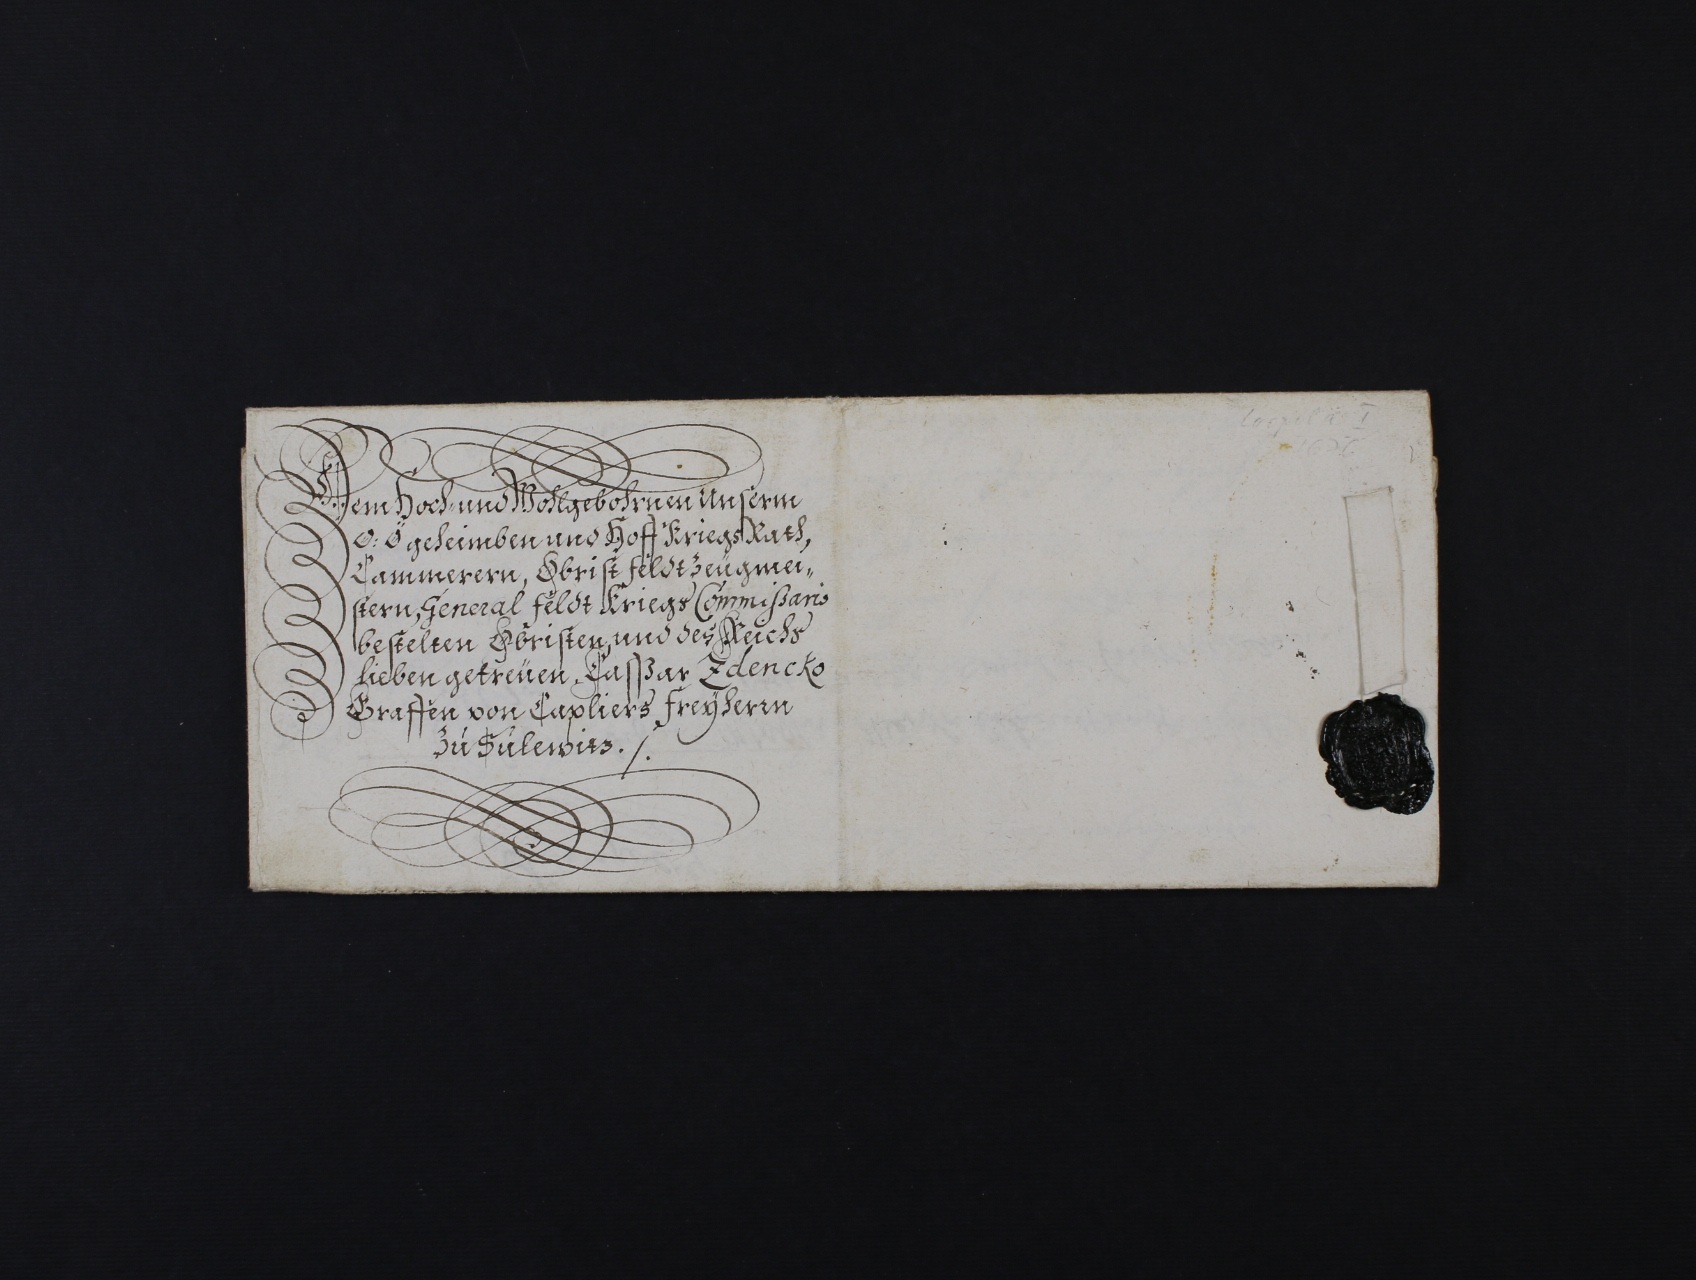 Dem Hoch- und Wohlgebohrnen Unserm
O: Ö geheimben und Hoff Kriegs Rath,
Cammerern, Obrist feldt Zeügmei„
stern, General feldt Kriegs Commissario
bestelten Obristen, und des Reichs
lieben getreüen, Casßar Zdencko
Graffen von Capliers, freÿherrn
Zú Súlewitz. /.
I